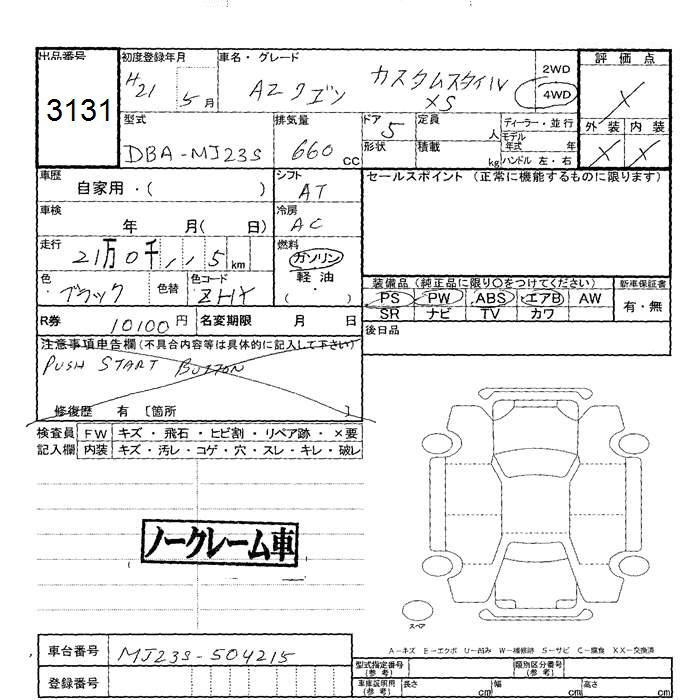 出品番号 初度登録年月 車名・グレード 評価点
3131 H21 5月 AZワゴン カスタムスタイル XS 2WD 4WD X
型式 排気量 ドア 定員 ディーラー・並行 外装 内装
DBA-MJ23S 660cc 5 人 モデル年式 年 X X
形状 積載 kg ハンドル 左・右
車歴 自家用・( ) シフト AT セールスポイント (正常に機能するものに限ります)
車検 年 月( 日) 冷房 AC
走行 21万0千,,5km 燃料 ガソリン
軽油・
( )
色 ブラック 色替 色コード ZHY
装備品 (純正品に限り○をつけてください) 新車保証書
PS PW ABS エアB AW 有・無
SR ナビ TV カワ
R券 10100円 名変期限 月 日 後日品
注意事項申告欄(不具合内容等は具体的に記入して下さい)
PUSH START BUTTON
修復歴 有 〔箇所 〕
検査員 FW キズ・飛石・ヒビ割・リペア跡・×要
記入欄 内装 キズ・汚レ・コゲ・穴・スレ・キレ・破レ
ノークレーム車
スペア
A-キズ E-エクボ U-凹み W-補修跡 S-サビ C-腐食 XX-交換済
車台番号 MJ23S-504215 型式指定番号(参考) 類別区分番号(参考)
登録番号 車庫証明用(参考) 長さ cm 幅 cm 高さ cm